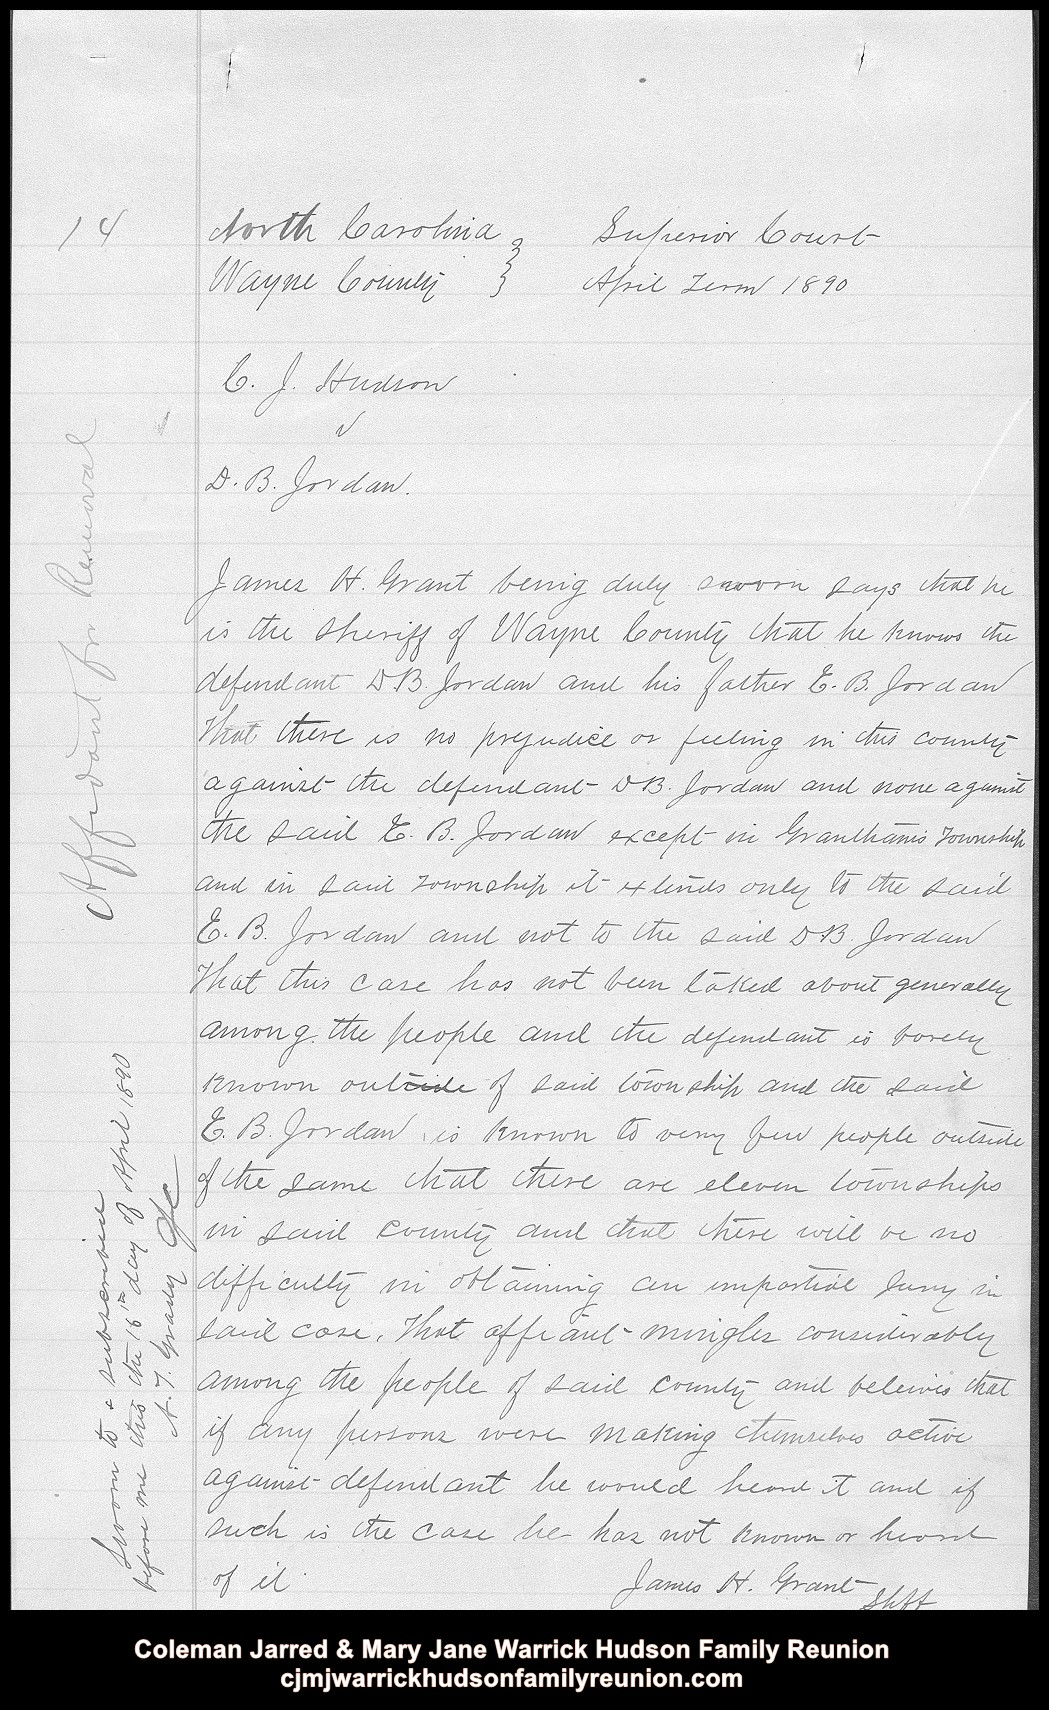 14
North Carolina } Superior Court
Wayne County } April Term 1890
C. J. Hudson
v
D. B. Jordan.
James H. Grant being duly sworn says that he
is the sheriff of Wayne County that he knows the
defendant D B. Jordan and his father E. B. Jordan
That there is no prejudice or feeling in this county
against the defendant D B. Jordan and none against
the said E. B. Jordan except in Granthams Township
and in said Township it extends only to the said
E. B. Jordan and not to the said D B. Jordan
That this case has not been talked about generally
among the people and the defendant is barely
known outside of said township and the said
E. B. Jordan is known to very few people outside
of the same that there are eleven townships
in said county and that there will be no
difficulty in obtaining an impartial Jury in
said case. That affiant mingles considerably
among the people of said county and beleives that
if any persons were making themselves active
against defendant he would heard it and if
such is the case he has not known or heard
of it.
James H. Grant Shff
Affidavit for Removal
Sworn to & subscribed
before me this the 16th day of April 1890
A. T. Grady CSC
Coleman Jarred & Mary Jane Warrick Hudson Family Reunion
cjmjwarrickhudsonfamilyreunion.com